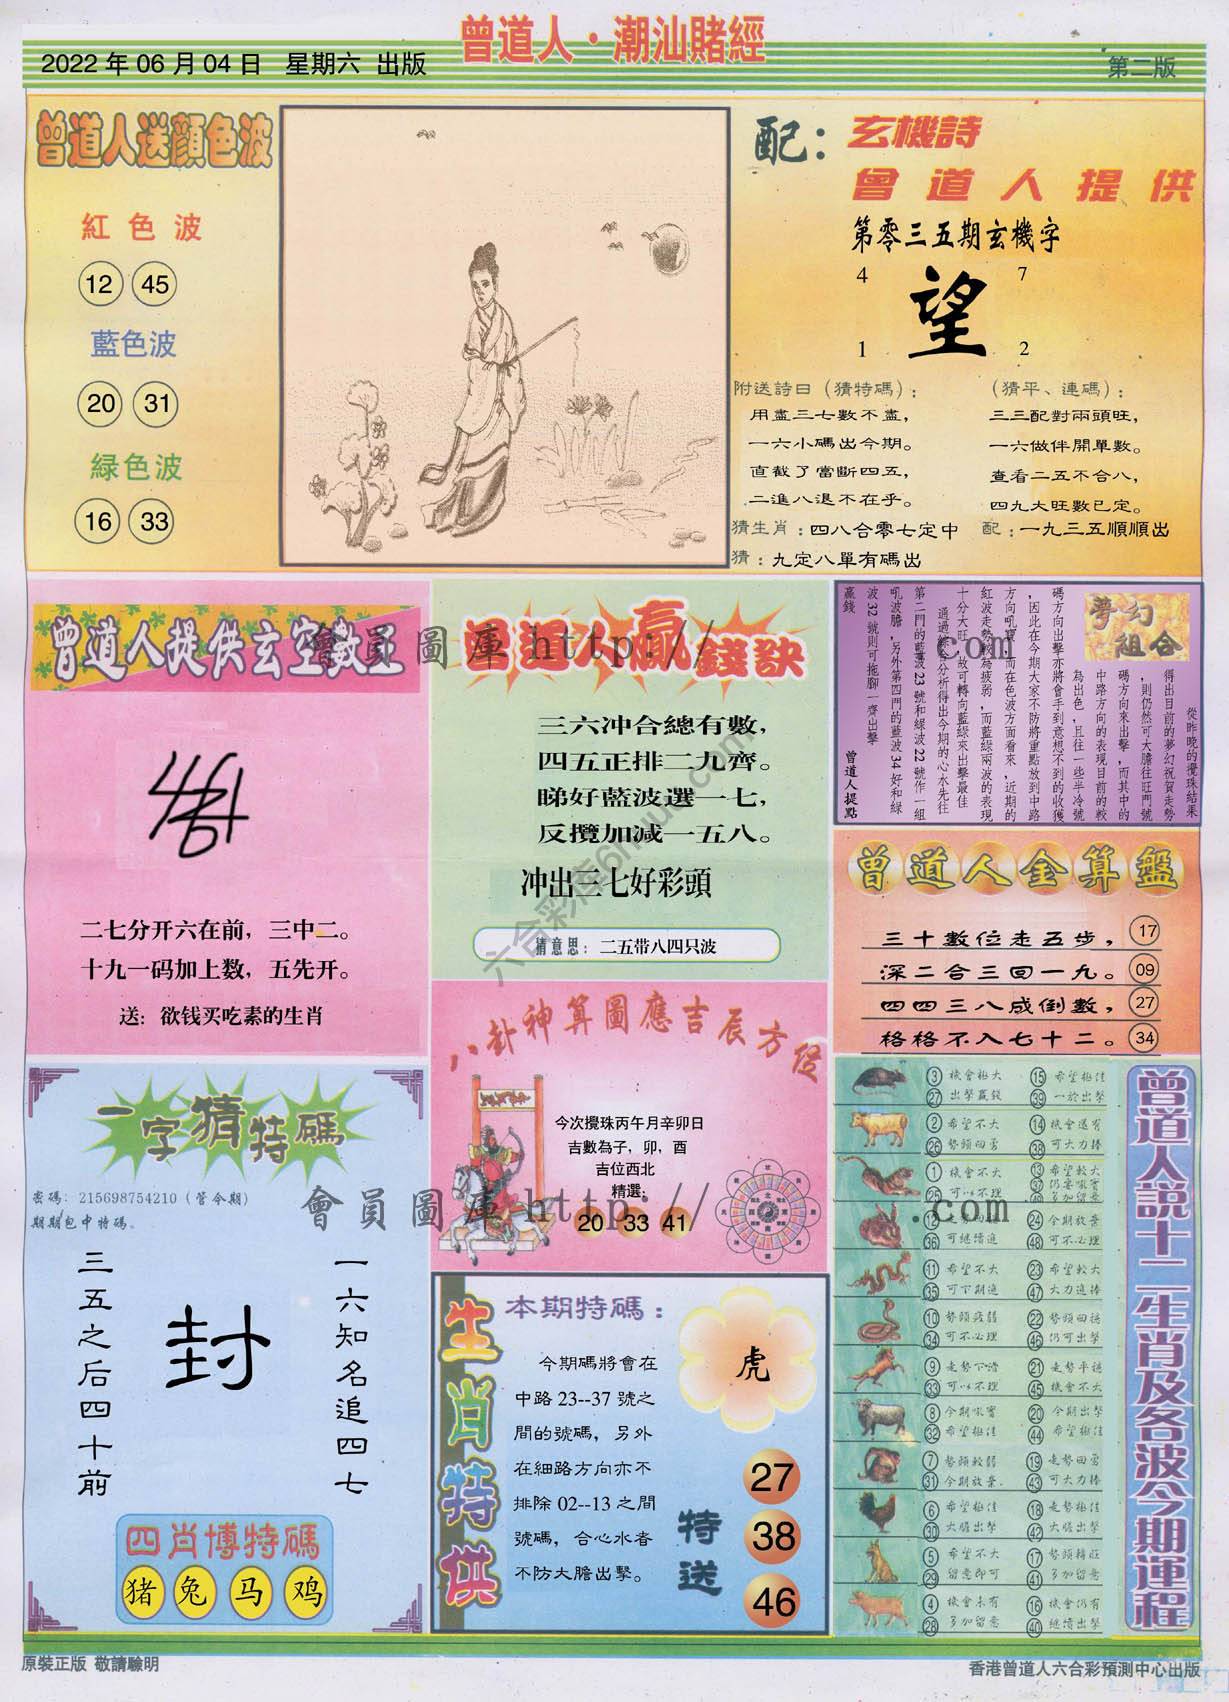 曾道人·潮汕賭經
2022 年 06 月 04 日 星期六 出版
第二版
曾道人送顏色波
紅色波
12 45
藍色波
20 31
緑色波
16 33
配：玄機詩
曾道人提供
第零三五期玄機字
4 7
望
1 2
附送詩曰（猜特碼）：
用盡三七數不盡，
一六小碼出今期。
直截了當斷四五，
二進八退不在乎。
猜生肖：四八合零七定中
猜：九定八單有碼出
（猜平、連碼）：
三三配對兩頭旺，
一六做伴開單數。
查看二五不合八，
四九大旺數已定。
配：一九三五順順出
曾道人提供玄空數王
二七分开六在前，三中二。
十九一码加上数，五先开。
送：欲钱买吃素的生肖
曾道人贏錢訣
三六冲合總有數，
四五正排二九齊。
睇好藍波選一七，
反攪加减一五八。
冲出三七好彩頭
猜意思：二五带八四只波
夢幻組合
從昨晚的攪珠結果
得出目前的夢幻祝賀走勢
，則仍然可大膽往旺門號
碼方向來出擊，而其中的
中路方向的表現目前的較
為出色，且往一些半冷號
碼方向出擊亦將會手到意想不到的收獲
，因此在今期大家不防將重點放到中路
方向吼寶，而在色波方面看來，近期的
紅波走勢較為疲弱，而藍綠兩波的表現
十分大旺，故可轉向藍綠來出擊最佳
通過綜合分析得出今期的心水先往
第二門的藍波 23 號和緑波 22 號作一組
吼波膽，另外第四門的藍波 34 好和綠
波 32 號則可拖腳一齊出擊
贏錢
曾道人提點
曾道人金算盤
三十數位走五步， 17
深二合三回一九。 09
四四三八成倒數， 27
格格不入七十二。 34
八卦神算圖應吉辰方位
今次攪珠丙午月辛卯日
吉數為子，卯，酉
吉位西北
精選：
20 33 41
一字猜特碼
密碼：215698754210（管今期）
期期包中特碼。
一六知名追四七
封
三五之后四十前
四肖博特碼
猪 兔 马 鸡
生肖特供
本期特碼：
今期碼將會在
中路 23--37 號之
間的號碼，另外
在細路方向亦不
排除 02--13 之間
號碼，合心水者
不防大膽出擊。
虎
特送
27
38
46
曾道人説十二生肖及各波今期運程
3 機會極大 15 希望極佳
27 出擊贏錢 39 一於出擊
2 希望不大 14 機會還有
26 勢頭回勇 38 可大力捧
1 機會不大 13 希望較大
25 可以不理 37 仍要吼實
49 多加留意
12 走勢回穩 24 今期放棄
36 可繼續進 48 可不必理
11 希望不大 23 希望較大
35 可下期進 47 大力進捧
10 勢頭疲弱 22 勢頭回穩
34 可不必理 46 仍可出擊
9 走勢下滑 21 走勢平穩
33 可以不理 45 機會不大
8 今期吼實 20 今期出擊
32 希望極佳 44 希望極佳
7 勢頭較弱 19 走勢回勇
31 今期放棄. 43 可大力捧
6 希望極佳 18 走勢極佳
30 大膽出擊 42 大膽出擊
5 希望不大 17 勢頭轉旺
29 留意即可 41 多加留意
4 機會未有 16 機會仍有
28 多加留意 40 繼續出擊
會員圖庫 http:// .com
會員圖庫 http:// .com
原裝正版 敬請驗明
香港曾道人六合彩預測中心出版